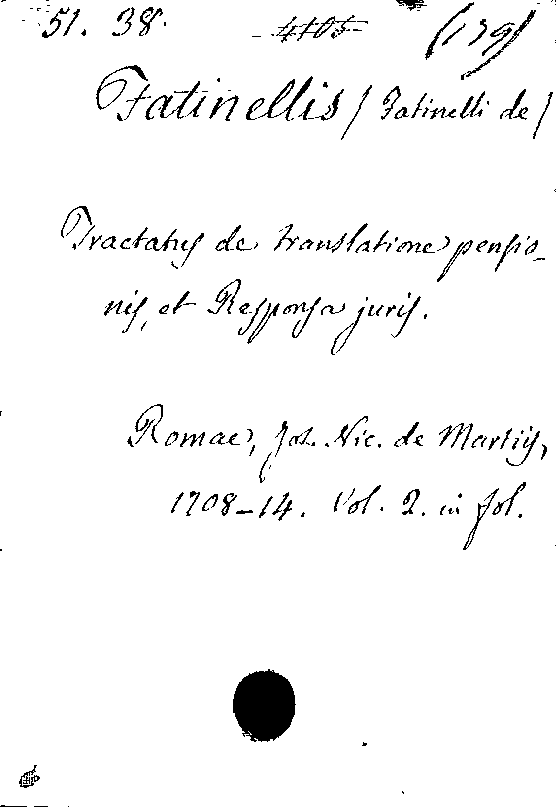 51. 38. 4105 (139)
Fatinellis / Fatinelli de /
Tractatus de translatione pensio-
nis, et Responsa juris.
Romae, Joh. Nic. de Martiis,
1708-14. Vol. 2. in fol.